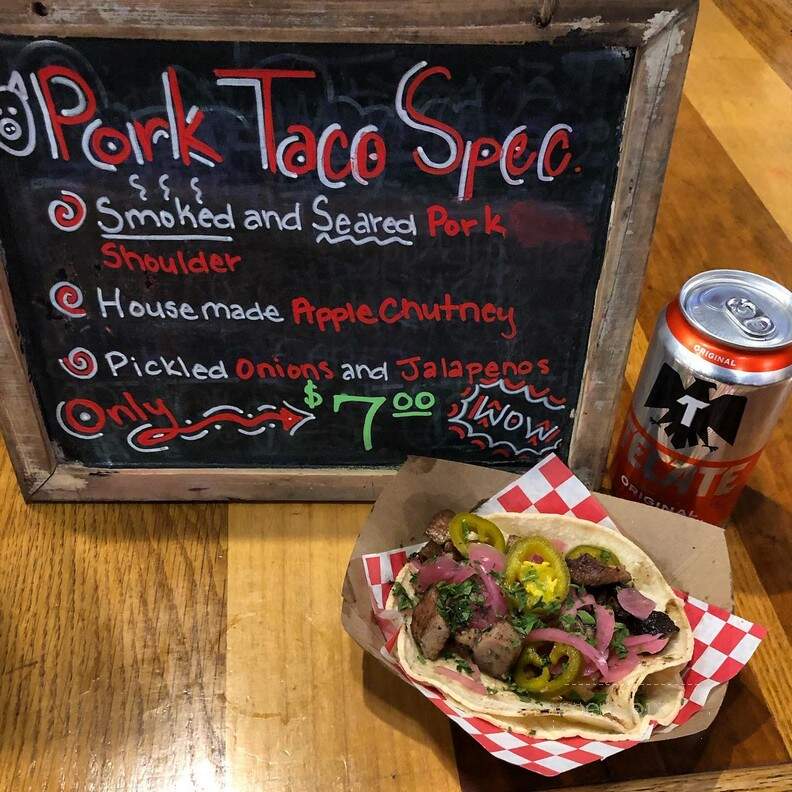 Pork Taco Spec.
Smoked and Seared Pork
Shoulder
Housemade Apple Chutney
Pickled Onions and Jalapenos
Only $7.00 WOW
ORIGINAL
T
TECATE
ORIGINAL